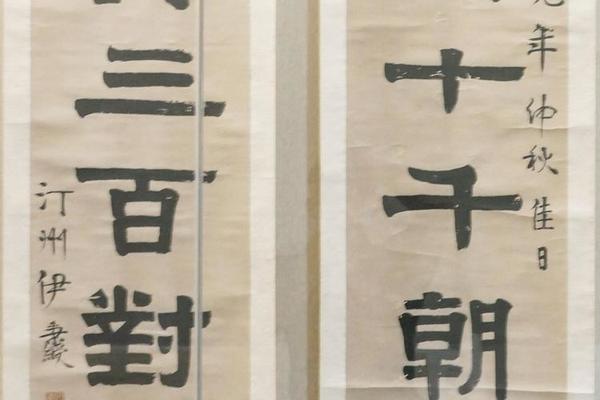 年仲秋佳日
十千朝
三百對
汀州伊秉綬